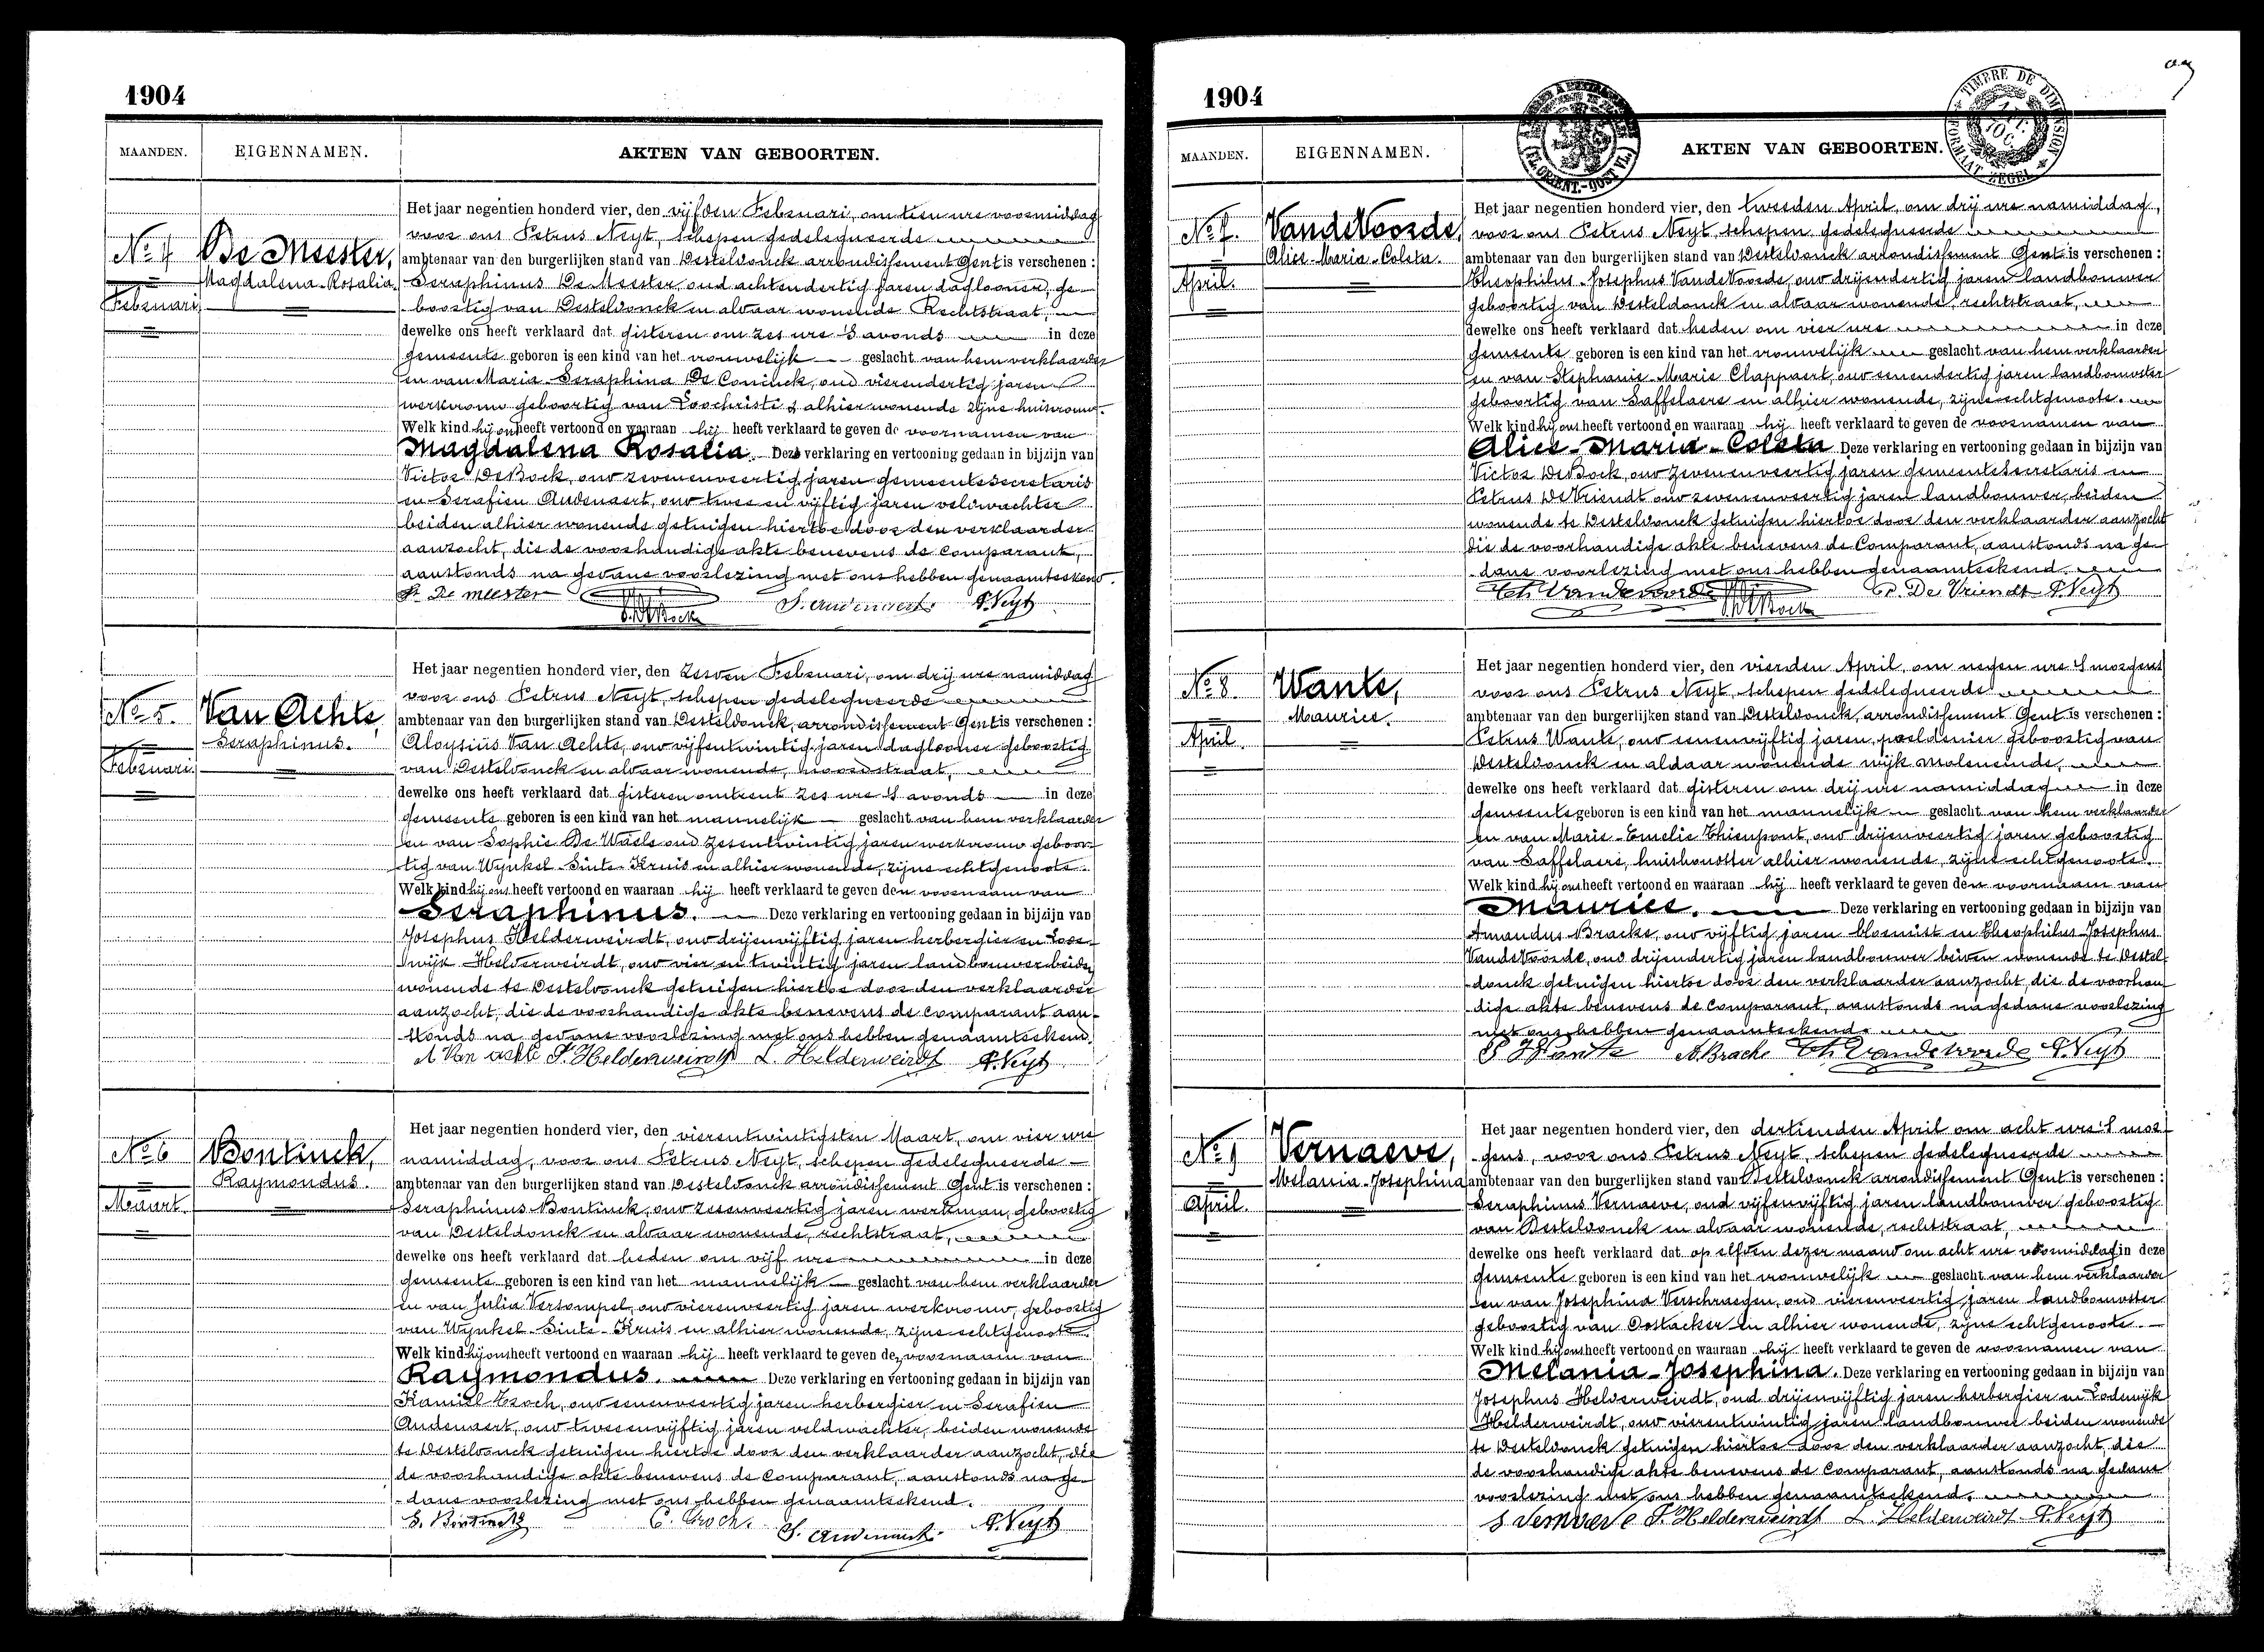 1904
MAANDEN.
EIGENNAMEN.
AKTEN VAN GEBOORTEN.
No 4
Februari
De Meester,
Magdalena-Rosalia
Het jaar negentien honderd vier, den vijfden Februari, om tien ure voormiddag
voor ons Petrus Neyt, schepen gedelegueerde
ambtenaar van den burgerlijken stand van Desteldonck arrondissement Gent is verschenen :
Seraphinus De Meester, oud achtendertig jaren daglooner, ge-
boortig van Desteldonck en aldaar wonende Rechtstraat,
dewelke ons heeft verklaard dat gisteren om zes ure 's avonds in deze
gemeente geboren is een kind van het vrouwelijk geslacht van hem verklaarder
en van Maria-Seraphina De Coninck, oud vierendertig jaren
werkvrouw geboortig van Loochristi & alhier wonende zijne huisvrouw.
Welk kind hij ons heeft vertoond en waaraan hij heeft verklaard te geven de voornamen van
Magdalena Rosalia. Deze verklaring en vertooning gedaan in bijzijn van
Victor De Bock, oud zevenenveertig jaren gemeentesecretaris
en Serafien Audenaert, oud twee en vijftig jaren veldwachter
beiden alhier wonende getuigen hiertoe door den verklaarder
aanzocht, die de voorhandige akte benevens de Comparant,
aanstonds na gedane voorlezing met ons hebben genaamteekend.
S. De meester V. De Bock S. Audenaert P. Neyt
No 5.
Februari
Van Achte,
Seraphinus.
Het jaar negentien honderd vier, den zesden Februari, om drij ure namiddag
voor ons Petrus Neyt, schepen gedelegueerde
ambtenaar van den burgerlijken stand van Desteldonck, arrondissement Gent is verschenen :
Aloysius Van Achte, oud vijfentwintig jaren daglooner geboortig
van Desteldonck en aldaar wonende, noordstraat,
dewelke ons heeft verklaard dat gisteren omtrent zes ure 's avonds in deze
gemeente geboren is een kind van het mannelijk geslacht van hem verklaarder
en van Sophie De Waele oud zesentwintig jaren werkvrouw geboor-
tig van Wynkel-Sinte-Kruis en alhier wonende, zijne echtgenoote.
Welk kind hij ons heeft vertoond en waaraan hij heeft verklaard te geven den voornaam van
Seraphinus. Deze verklaring en vertooning gedaan in bijzijn van
Josephus Helderweirdt, oud drijenvijftig jaren herbergier en Lode-
wijk Helderweirdt, oud vier en twintig jaren landbouwer beiden
wonende te Desteldonck getuigen hiertoe door den verklaarder
aanzocht, die de voorhandige akte benevens de Comparant aan-
stonds na gedane voorlezing met ons hebben genaamteekend.
A Van achte J. Helderweirdt L. Helderweirdt P. Neyt
No 6
Maart
Bontinck,
Raymondus.
Het jaar negentien honderd vier, den vierentwintigsten Maart, om vier ure
namiddag, voor ons Petrus Neyt, schepen gedelegueerde
ambtenaar van den burgerlijken stand van Desteldonck arrondissement Gent is verschenen :
Seraphinus Bontinck, oud zesenveertig jaren werkman, geboortig
van Desteldonck en aldaar wonende, rechtstraat,
dewelke ons heeft verklaard dat heden om vijf ure in deze
gemeente geboren is een kind van het mannelijk geslacht van hem verklaarder
en van Julia Versompel, oud vierenveertig jaren werkvrouw, geboortig
van Wynkel-Sinte-Kruis en alhier wonende, zijne echtgenoote.
Welk kind hij ons heeft vertoond en waaraan hij heeft verklaard te geven den voornaam van
Raymondus. Deze verklaring en vertooning gedaan in bijzijn van
Kamiel Croch, oud eenenveertig jaren herbergier en Serafien
Audenaert, oud tweeenvijftig jaren veldwachter, beiden wonende
te Desteldonck getuigen hiertoe door den verklaarder aanzocht, die
de voorhandige akte benevens de Comparant, aanstonds na ge-
dane voorlezing met ons hebben genaamteekend.
S. Bontinck C. Croch. S. Audenaert. P. Neyt
1904
MAANDEN.
EIGENNAMEN.
AKTEN VAN GEBOORTEN.
TIMBRE DE DIMENSION
FORMAAT ZEGEL
(FL. ORIENT.-OOST VL.)
No 7.
April.
Van de Voorde,
Alice-Maria-Coleta.
Het jaar negentien honderd vier, den tweeden April, om drij ure namiddag,
voor ons Petrus Neyt, schepen gedelegueerde
ambtenaar van den burgerlijken stand van Desteldonck arrondissement Gent is verschenen :
Theophilus-Josephus Van de Voorde, oud drijendertig jaren landbouwer
geboortig van Desteldonck en aldaar wonende, rechtstraat,
dewelke ons heeft verklaard dat heden om vier ure in deze
gemeente geboren is een kind van het vrouwelijk geslacht van hem verklaarder
en van Stephanie-Marie Clappaert, oud eenendertig jaren landbouwster
geboortig van Saffelaere en alhier wonende, zijne echtgenoote.
Welk kind hij ons heeft vertoond en waaraan hij heeft verklaard te geven de voornamen van
Alice-Maria-Coleta Deze verklaring en vertooning gedaan in bijzijn van
Victor De Bock, oud zevenenveertig jaren gemeentesecretaris en
Petrus De Vriendt oud zevenenveertig jaren landbouwer, beiden
wonende te Desteldonck getuigen hiertoe door den verklaarder aanzocht
die de voorhandige akte benevens de Comparant, aanstonds na ge-
dane voorlezing met ons hebben genaamteekend.
Th. Vandevoorde V. De Bock P. De Vriendt P. Neyt
No 8.
April.
Wante,
Maurice.
Het jaar negentien honderd vier, den vierden April, om negen ure 's morgens
voor ons Petrus Neyt, schepen gedelegueerde
ambtenaar van den burgerlijken stand van Desteldonck, arrondissement Gent is verschenen :
Petrus Wante, oud eenenvijftig jaren, poeldenier geboortig van
Desteldonck en aldaar wonende wijk moleneinde,
dewelke ons heeft verklaard dat gisteren om drij ure namiddag in deze
gemeente geboren is een kind van het mannelijk geslacht van hem verklaarder
en van Marie-Emelie Thienpont, oud drijenveertig jaren geboortig
van Saffelaere, huishoudster alhier wonende, zijne echtgenoote.
Welk kind hij ons heeft vertoond en waaraan hij heeft verklaard te geven den voornaam van
Maurice. Deze verklaring en vertooning gedaan in bijzijn van
Amandus Bracke, oud vijftig jaren bloemist en Theophilus-Josephus
Van de Voorde, oud drijendertig jaren landbouwer beiden wonende te Destel-
donck getuigen hiertoe door den verklaarder aanzocht, die de voorhan-
dige akte benevens de Comparant, aanstonds na gedane voorlezing
met ons hebben genaamteekend.
P Wante A. Bracke Th. Vandevoorde P. Neyt
No 9
April.
Vernaeve,
Melania-Josephina
Het jaar negentien honderd vier, den dertienden April om acht ure 's mor-
gens, voor ons Petrus Neyt, schepen gedelegueerde
ambtenaar van den burgerlijken stand van Desteldonck arrondissement Gent is verschenen :
Seraphinus Vernaeve, oud vijfenvijftig jaren landbouwer geboortig
van Desteldonck en aldaar wonende, rechtstraat,
dewelke ons heeft verklaard dat op elfden dezer maand om acht ure voormiddag in deze
gemeente geboren is een kind van het vrouwelijk geslacht van hem verklaarder
en van Josephina Verschraegen, oud vierenveertig jaren landbouwster
geboortig van Oostacker en alhier wonende, zijne echtgenoote.
Welk kind hij ons heeft vertoond en waaraan hij heeft verklaard te geven de voornamen van
Melania-Josephina. Deze verklaring en vertooning gedaan in bijzijn van
Josephus Helderweirdt, oud drijenvijftig jaren herbergier en Lodewijk
Helderweirdt, oud vierentwintig jaren landbouwer beiden wonende
te Desteldonck getuigen hiertoe door den verklaarder aanzocht, die
de voorhandige akte benevens de Comparant, aanstonds na gedane
voorlezing met ons hebben genaamteekend.
S Vernaeve J. Helderweirdt L. Helderweirdt P. Neyt